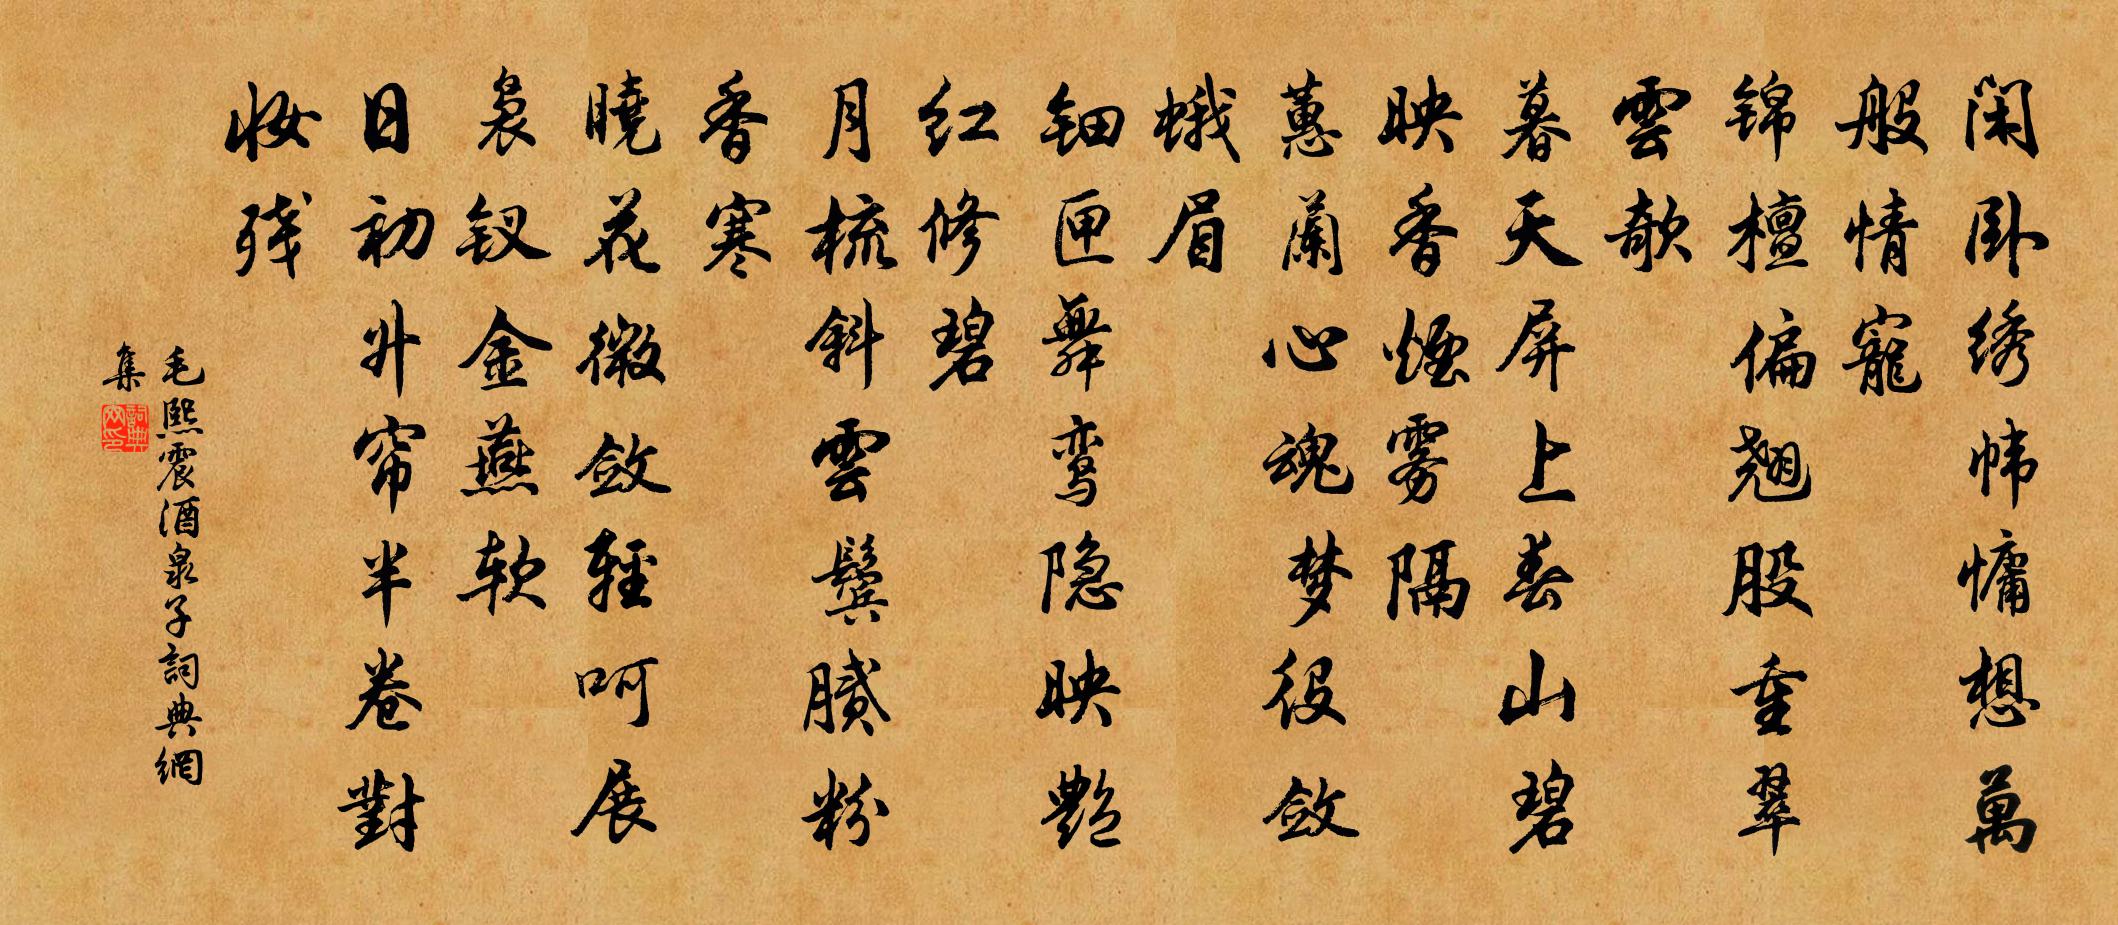 闲卧绣帏慵想萬
般情寵
锦檀偏翘股重翠
雲欹
暮天屏上春山碧
映香煙雾隔
蕙蘭心魂梦役敛
蛾眉
钿匣舞鸾隐映艷
红修碧
月梳斜雲鬓膩粉
香寒
曉花微敛輕呵展
袅钗金燕软
日初升帘半卷對
妆残
毛熙震酒泉子詞典網
集